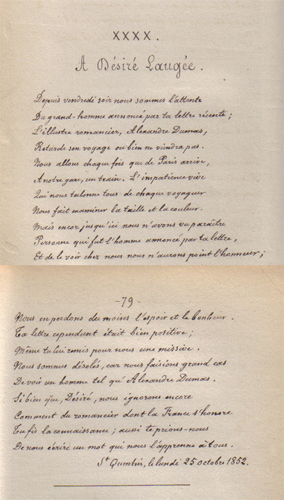 XXXX.
A Désiré Laugée.
Depuis vendredi soir nous sommes dans l'attente
Du grand homme annoncé par ta lettre récente;
L'illustre romancier, Alexandre Dumas,
Retarde son voyage ou bien ne viendra pas.
Nous allons chaque fois que de Paris arrive,
A notre gare, un train. L'impatience vive
Qui nous talonne tous de chaque voyageur
Nous fait examiner la taille et la couleur.
Mais encor jusqu'ici nous n'avons vu paraître
Personne qui fut l'homme annoncé par ta lettre,
Et de le voir chez nous nous n'aurons point l'honneur;
- 79 -
Nous en perdons du moins l'espoir et le bonheur.
Ta lettre cependant était bien positive;
Même tu lui remis pour nous une missive.
Nous sommes désolés, car nous faisions grand cas
De voir un homme tel qu'Alexandre Dumas.
Si bien que, Désiré, nous ignorons encore
Comment du romancier dont la France s'honore
Tu fis la connaissance; aussi te prions-nous
De nous écrire un mot qui nous l'apprenne à tous.
St Quentin, le lundi 25 octobre 1852.